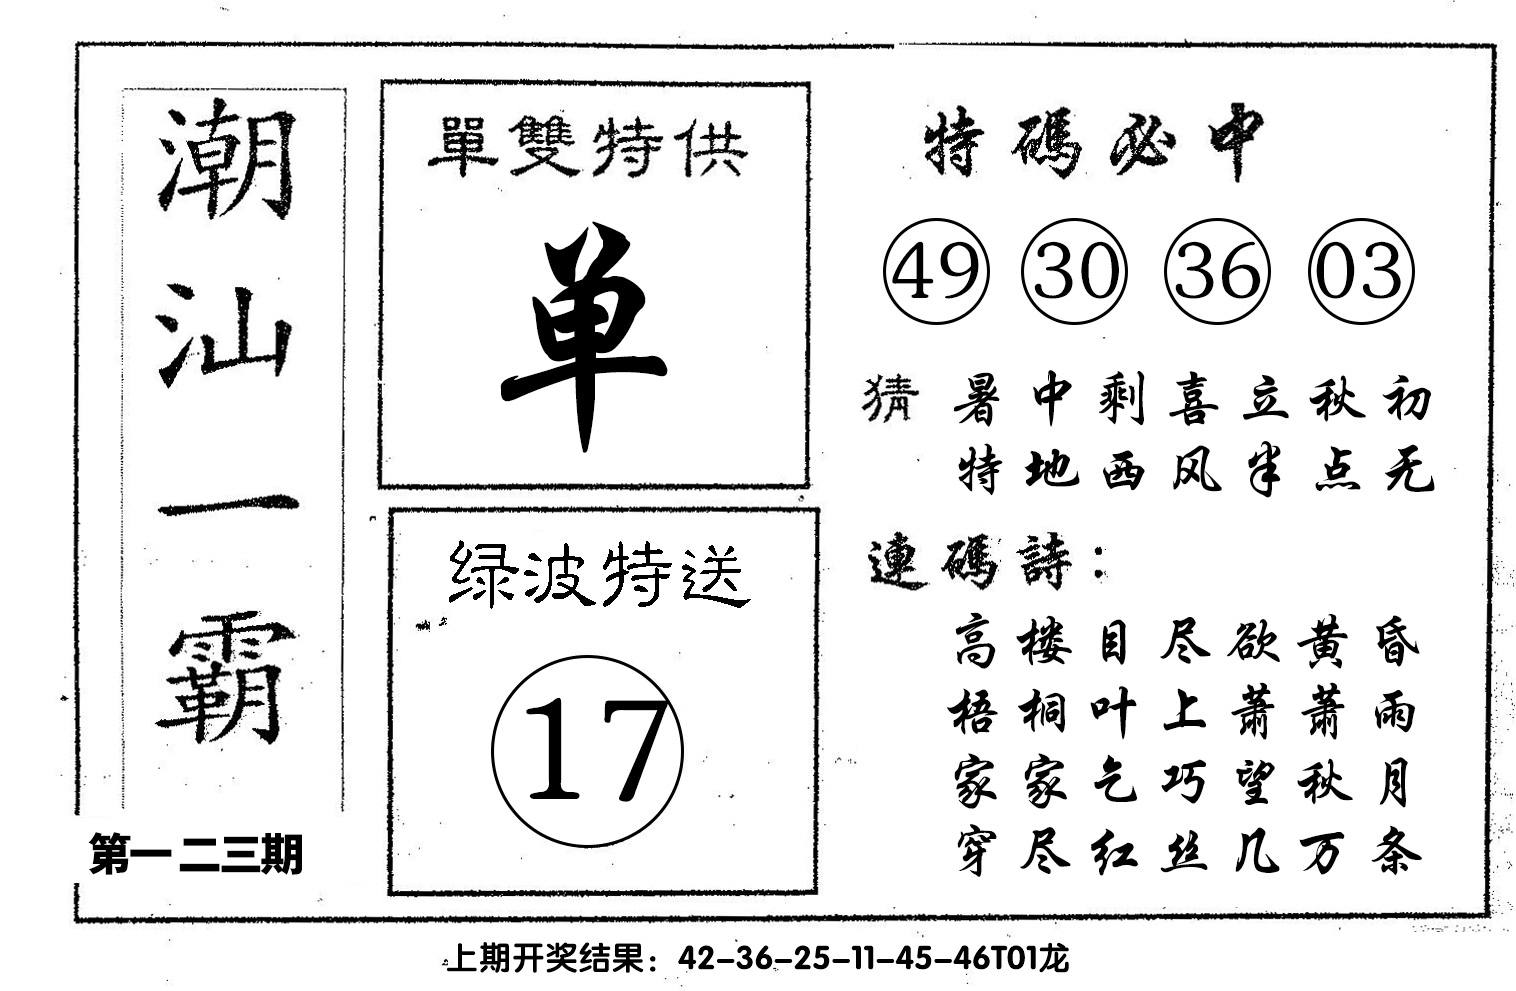 潮汕一霸
第一二三期
單雙特供
单
绿波特送
17
特碼必中
49 30 36 03
猜 暑中剩喜立秋初
特地西风半点无
連碼詩：
高楼目尽欲黄昏
梧桐叶上萧萧雨
家家乞巧望秋月
穿尽红丝几万条
上期开奖结果：42-36-25-11-45-46T01龙